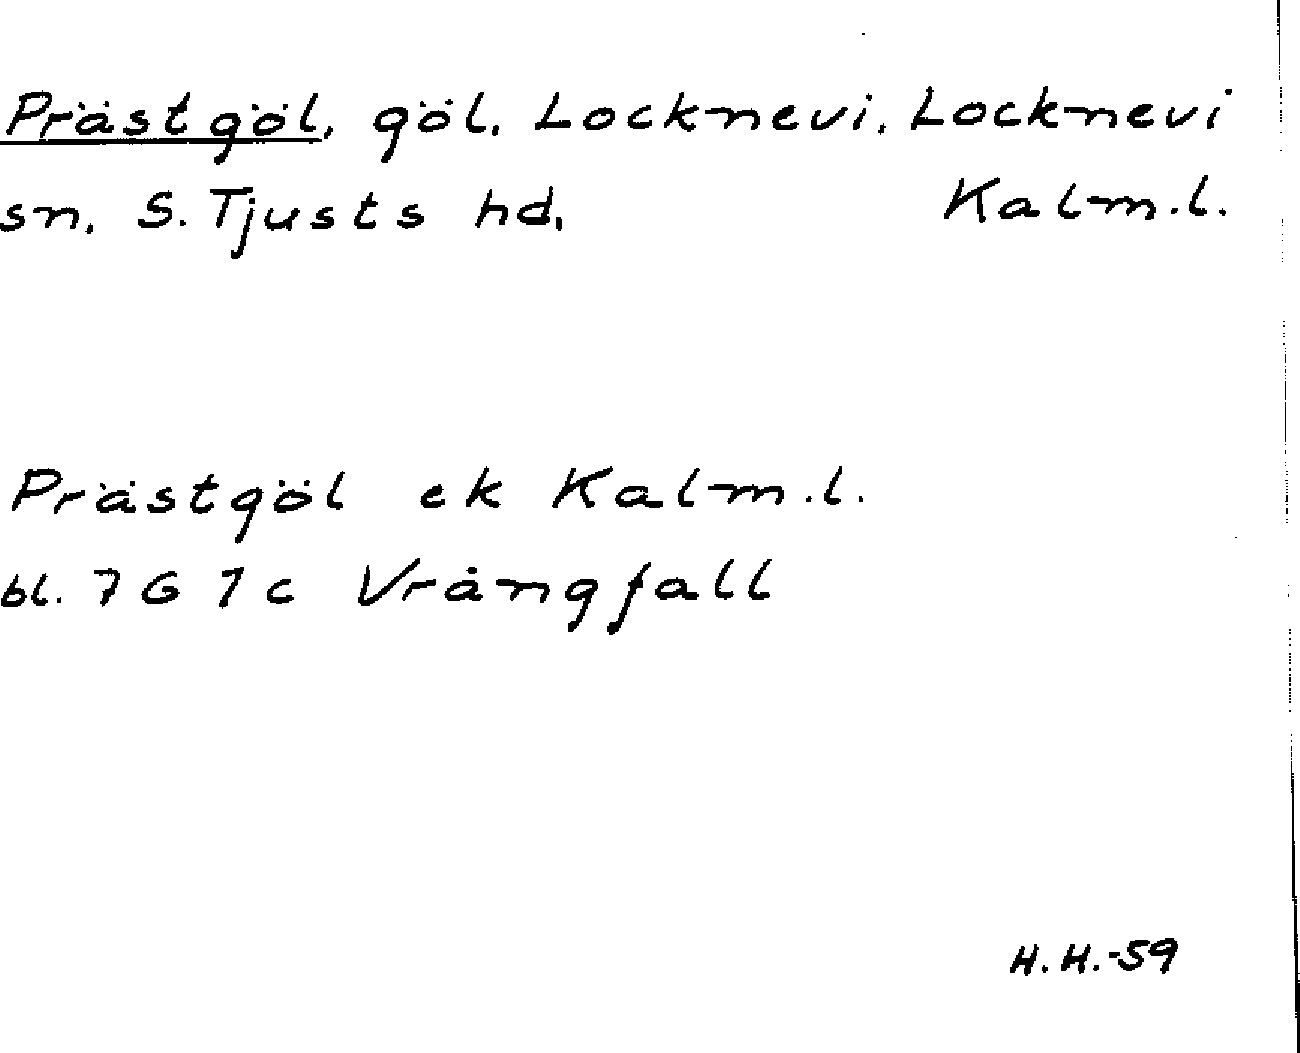 Prästgöl, göl, Locknevi, Locknevi
sn, S. Tjusts hd, Kalm.l.
Prästgöl ek Kalm.l.
bl. 7 G 7 c Vrångfall
H.H.-59